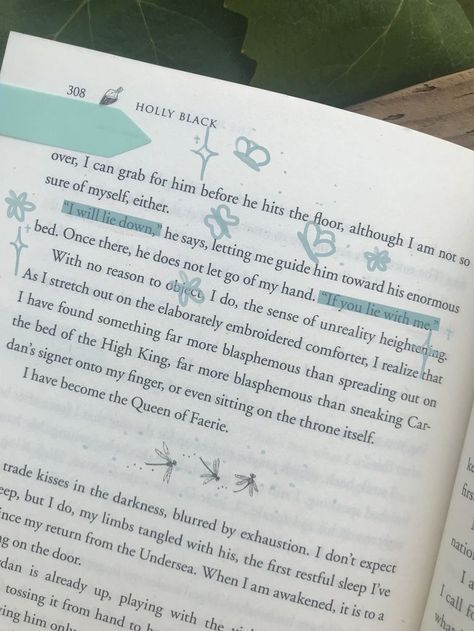 308
HOLLY BLACK
over, I can grab for him before he hits the floor, although I am not so
sure of myself, either.
“I will lie down,” he says, letting me guide him toward his enormous
bed. Once there, he does not let go of my hand. “If you lie with me.”
With no reason to object, I do, the sense of unreality heightening.
As I stretch out on the elaborately embroidered comforter, I realize that
I have found something far more blasphemous than spreading out on
the bed of the High King, far more blasphemous than sneaking Car-
dan’s signet onto my finger, or even sitting on the throne itself.
I have become the Queen of Faerie.
trade kisses in the darkness, blurred by exhaustion. I don’t expect
eep, but I do, my limbs tangled with his, the first restful sleep I’ve
ince my return from the Undersea. When I am awakened, it is to a
ng on the door.
dan is already up, playing with the
tossing it from hand to
ving him only
firs
nation
I a
I call f
wha